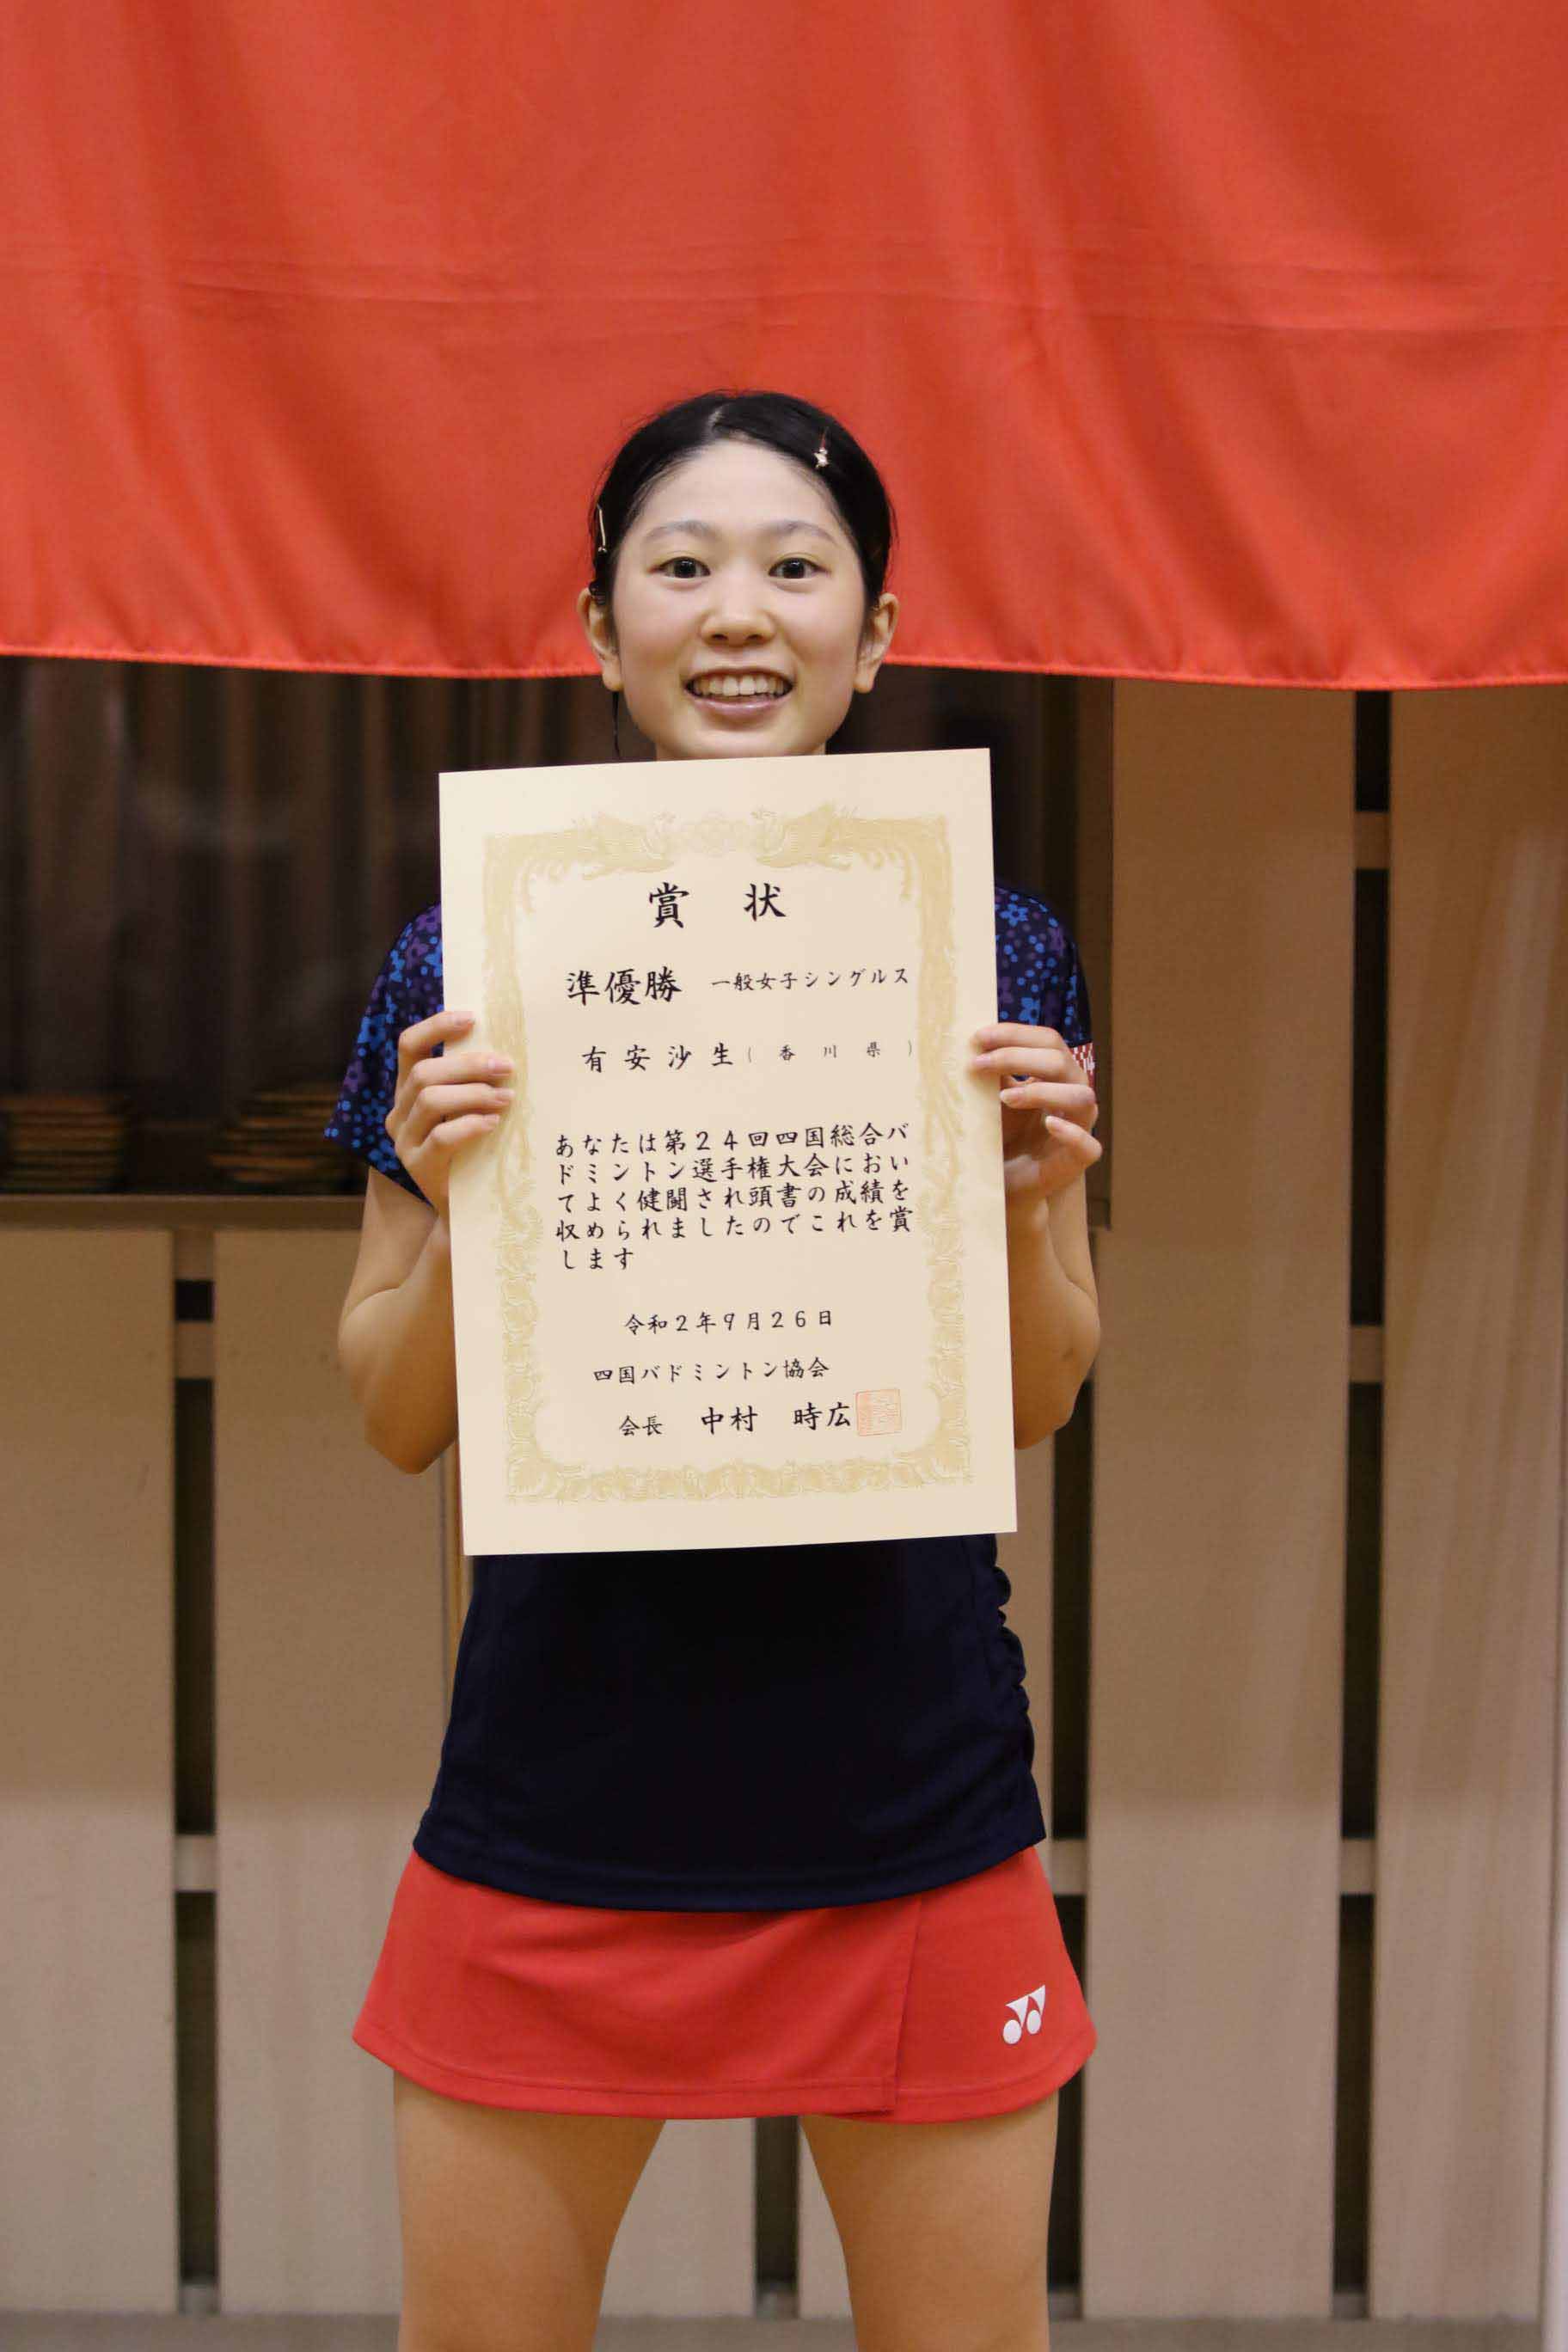 賞 状
準優勝 一般女子シングルス
有安沙生(香川県)
あなたは第24回四国総合バ
ドミントン選手権大会におい
てよく健闘され頭書の成績を
収められましたのでこれを賞
します
令和2年9月26日
四国バドミントン協会
会長 中村 時広